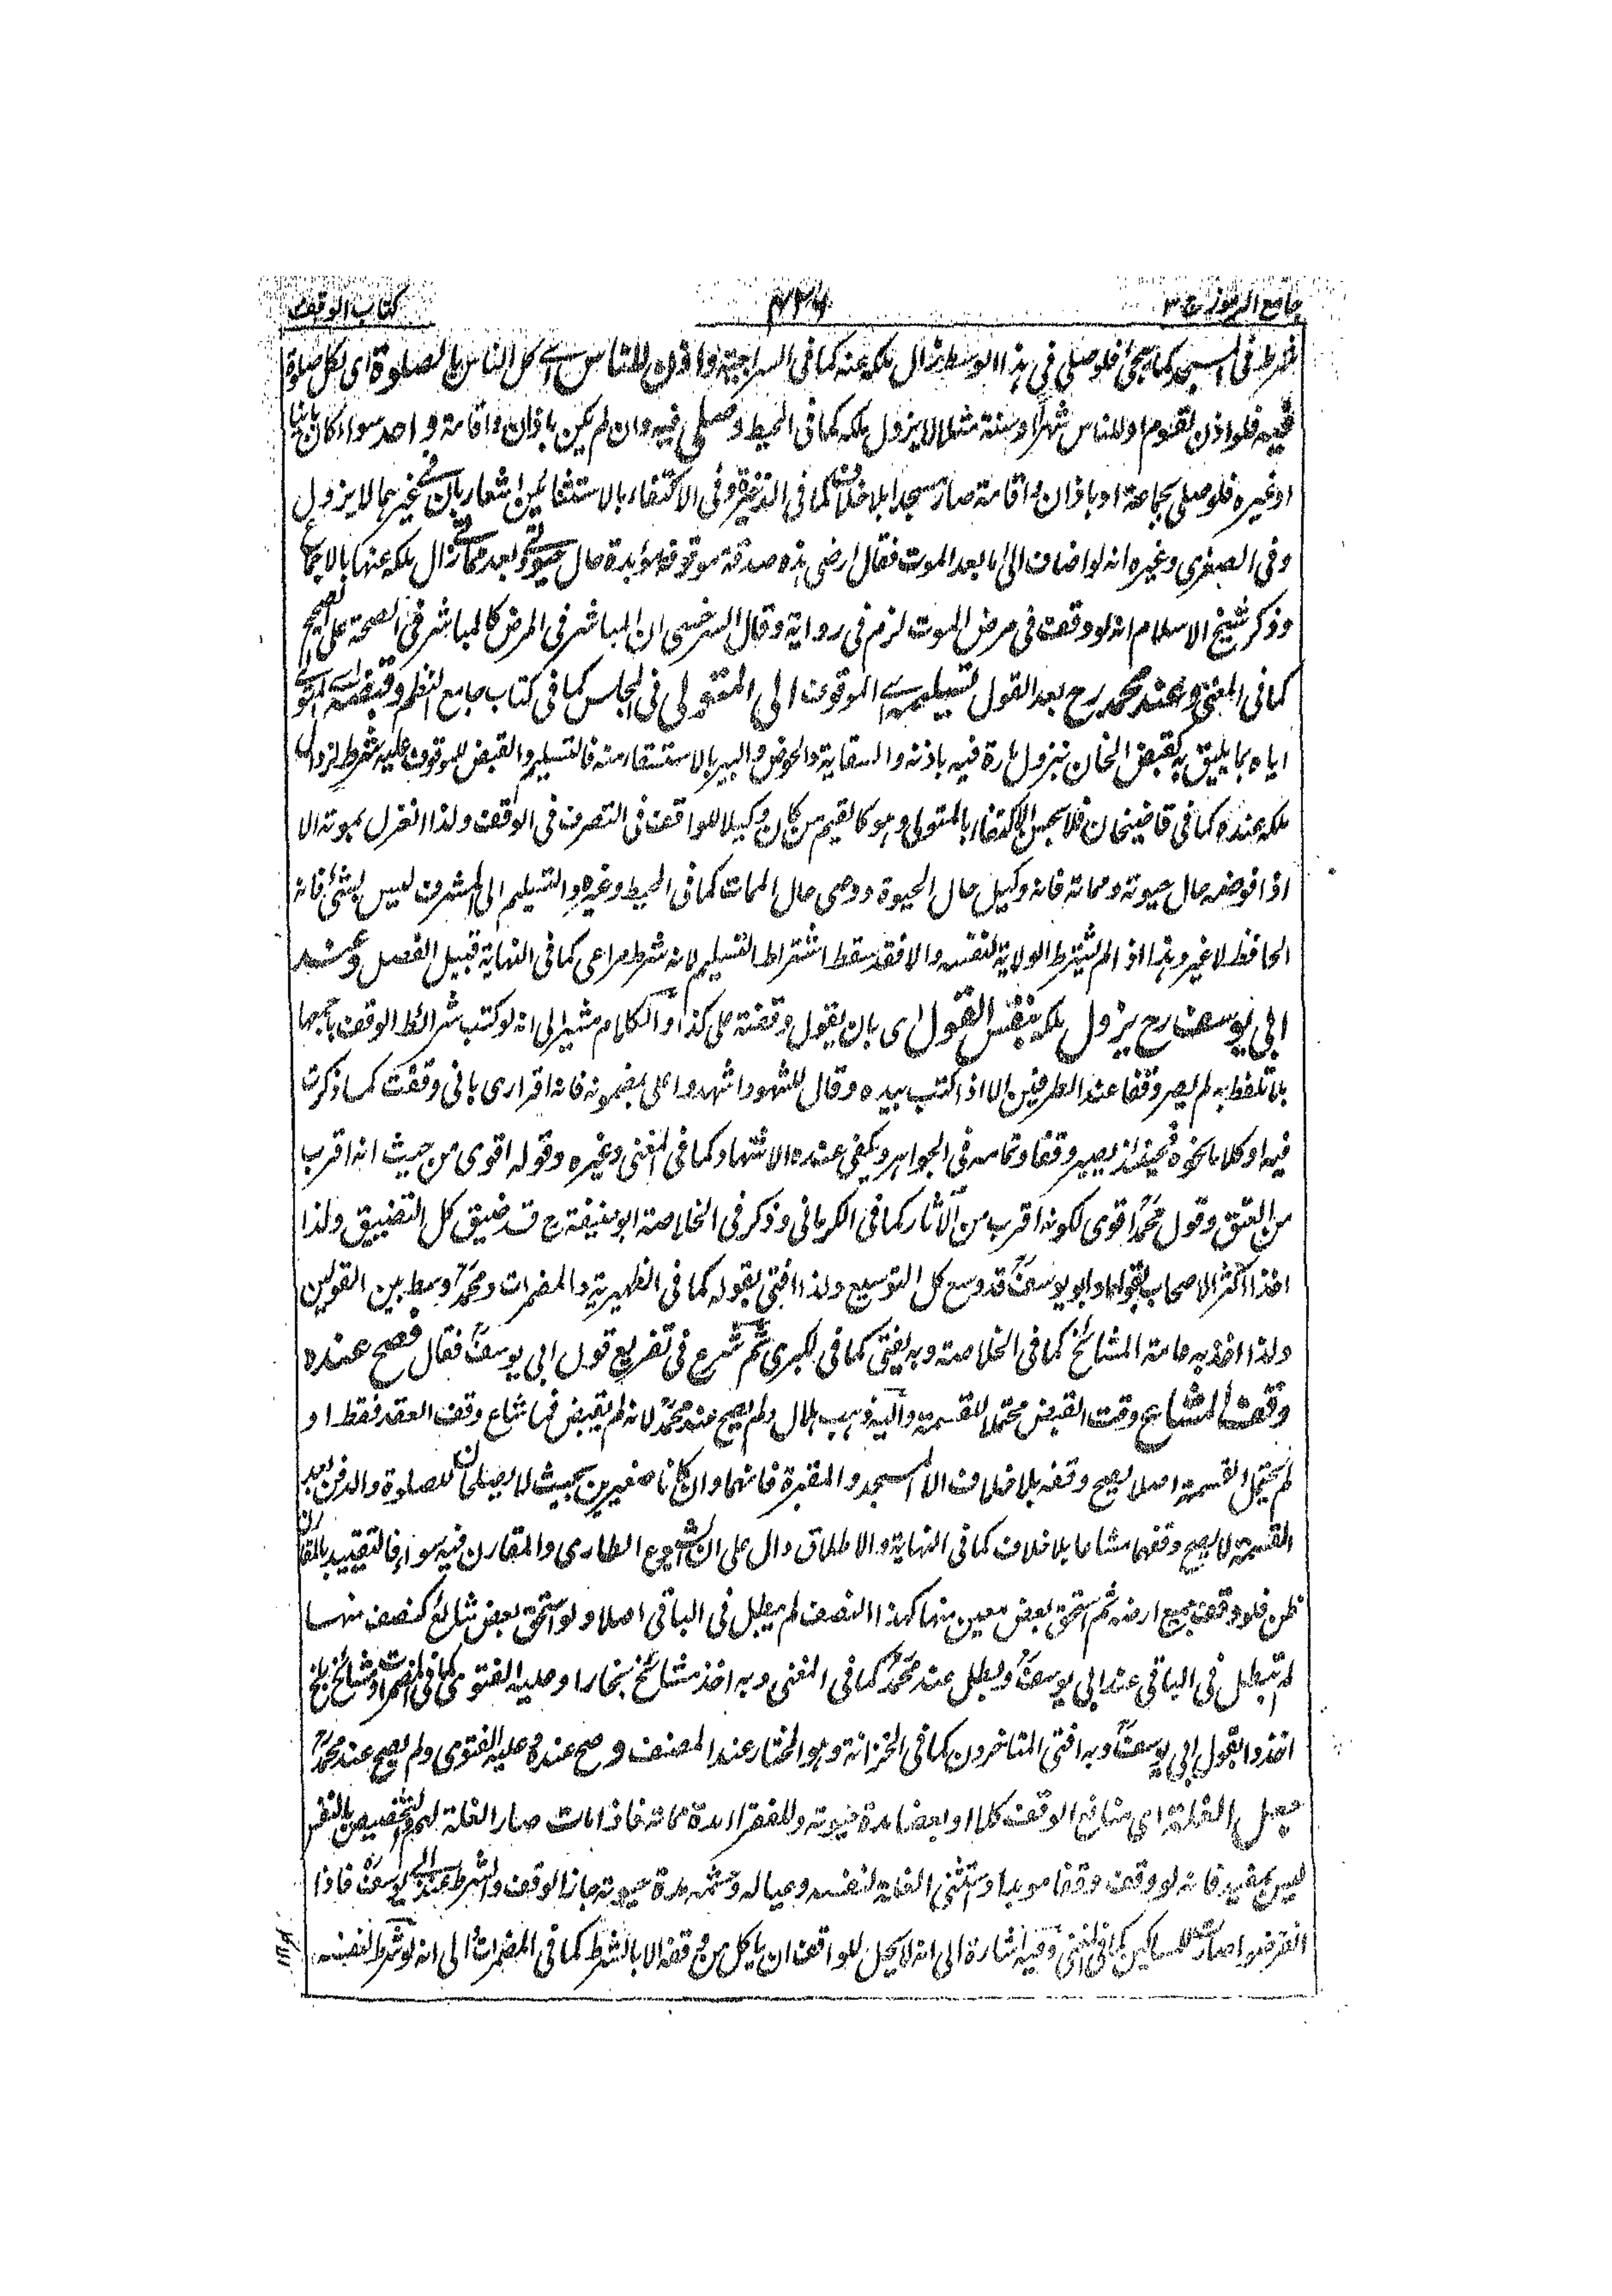 جامع الرموز ج ٣
كتاب الوقف
شرط فى المسجد كما يجئ فلو صلى فى هذا الوسط زال ملكه عنه كما فى السراجية واذن للناس اے كل الناس بالصلوة اى لكل صلوة
فيه فلو اذن لقوم او للناس شهرا او سنة مثلا لا يزول ملكه كما فى المحيط وصلى فيه وان لم يكن باذان واقامة واحد سواء كان بانيا
او غيره فلو صلى بجماعة او باذان واقامة صار مسجدا بلا خلاف كما فى الذخيرة وفى الاكتفاء بالاستثنائين اشعار بان فى غيرهما لا يزول
وفى الصغرى وغيره انه لو اضاف الى ما بعد الموت فقال ارضى هذه صدقة موقوفة مؤبدة حال حيوتى وبعد مماتى زال ملكه عنها بالاجماع
وذكر شيخ الاسلام انه لو وقف فى مرض الموت لزم فى رواية وقال السرخسى ان المباشر فى المرض كالمباشر فى الصحة على الصحيح
كما فى المغنى وعند محمد رح بعد القول تسليمه اے الموقوف الى المتولى فى المجلس كما فى كتاب جامع النظم وقبضه اے المتولى
اياه بما يليق به كقبض الخان بنزول مارة فيه باذنه والسقاية والحوض والبير بالاستسقاء منه فالتسليم والقبض للموقوف عليه شرط لزوال
ملكه عنده كما فى قاضيخان فلا يحسن الاكتفاء بالمتولى وهو كالقيم من كان وكيلا للواقف فى التصرف فى الوقف ولذا انعزل بموته الا
اذا فوضه حال حيوته ومماته فانه وكيل حال الحيوة ووصى حال الممات كما فى المحيط وغيره والتسليم الى المشرف ليس بشئ فانه
الحافظ لا غير وهذا اذا لم يشترط الولاية لنفسه والا فقد سقط اشتراط التسليم لانه شرط مراعى كما فى النهاية قبيل الفصل وعند
ابى يوسف رح يزول ملكه بنفس القول اى بان يقول وقفته على كذا والكلام مشير الى انه لو كتب شرائط الوقف باجمعها
بلا تلفظ به لم يصر وقفا عند الطرفين الا اذا كتب بيده وقال للشهود اشهدوا على بمضمونه فانه اقرارى بانى وقفت كما ذكرت
فيه او كلاما نحوه فحينئذ يصير وقفا وتمامه فى الجواهر ويكفى عنده الاشهاد كما فى المغنى وغيره وقوله اقوى من حيث انه اقرب
من العتق وقول محمد اقوى لكونه اقرب من الآثار كما فى الكرمانى وذكر فى الخلاصة ابو حنيفة رح قد ضيق كل التضييق ولذا
اخذ اكثر الاصحاب بقولهما وابو يوسف قد وسع كل التوسيع ولذا افتى بقوله كما فى الظهيرية والمضمرات ومحمد وسط بين القولين
ولذا اخذ به عامة المشائخ كما فى الخلاصة وبه يفتى كما فى الكبرى ثم شرع فى تفريع قول ابى يوسف فقال فصح عنده
وقف المشاع وقت القبض محتملا للقسمة واليه ذهب هلال ولم يصح عند محمد لانه لم يقبض فما شاع وقف العقد فقط او
لم يحتمل القسمة اصلا يصح وقفه بلا خلاف الا المسجد والمقبرة فانهما وان كانا صغيرين بحيث لا يصلحان للصلوة والدفن بعد
القسمة لا يصح وقفهما مشاعا بلا خلاف كما فى النهاية والاطلاق دال على ان الشيوع الطارى والمقارن فيه سواء فالتقييد بالمقارن
ظن فلو وقف جميع ارضه ثم استحق بعض معين منها كهذا النصف لم يبطل فى الباقى اصلا ولو استحق بعض شائع كنصف منها
لم يبطل فى الباقى عند ابى يوسف ويبطل عند محمد كما فى المغنى وبه اخذ مشائخ بخارا وعليه الفتوى كما فى المضمرات ومشائخ بلخ
اخذوا بقول ابى يوسف وبه افتى المتاخرون كما فى الخزانة وهو المختار عند المصنف وصح عنده وعليه الفتوى ولم يصح عند محمد
جعل الغلة اى منافع الوقف كلا او بعضا مدة حيوته وللفقراء مدة مماته فاذا مات صار الغلة لهم والتخصيص بالنفس
ليس بمقيد فانه لو وقف وقفا مؤبدا واستثنى الغلة لنفسه وعياله وحشمه مدة حيوته جاز الوقف والشرط عند ابى يوسف فاذا
انقرضوا صارت للمساكين كما فى المغنى وفيه اشارة الى انه لا يحل للواقف ان ياكل من وقفه الا بالشرط كما فى المضمرات الى انه لو شرط لنفسه